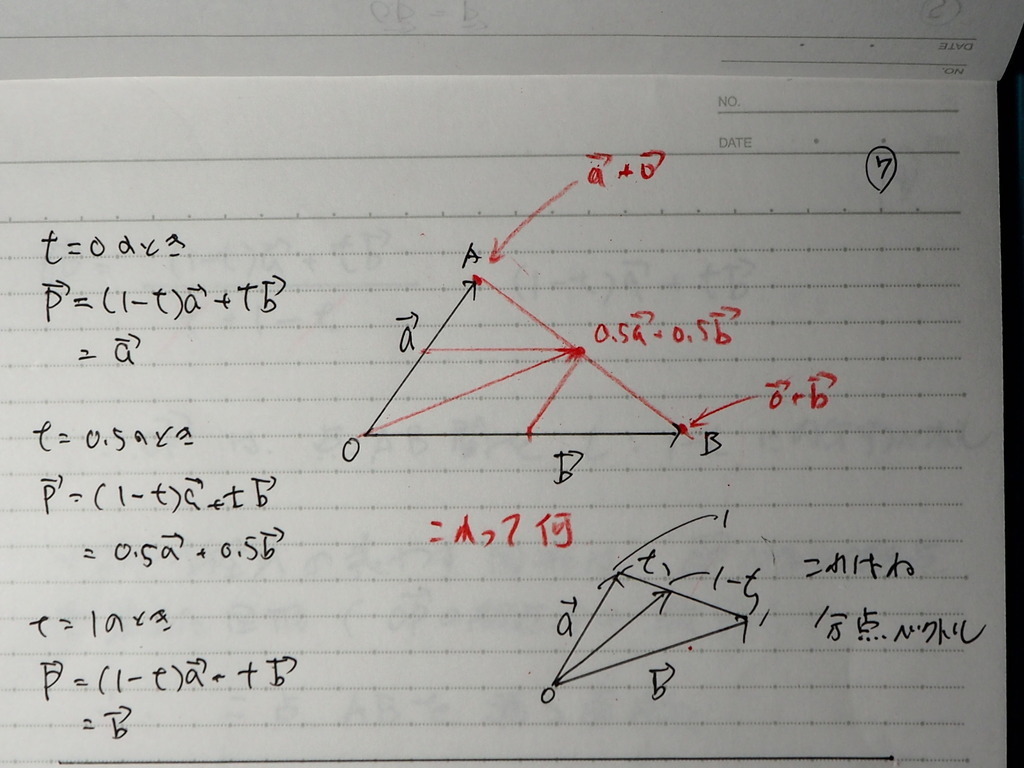 NO.
DATE
⑦
t=0のとき
p⃗=(1-t)a⃗+tb⃗
=a⃗
t=0.5のとき
p⃗=(1-t)a⃗+tb⃗
=0.5a⃗+0.5b⃗
t=1のとき
p⃗=(1-t)a⃗+tb⃗
=b⃗
a⃗+0⃗
A
a⃗
0.5a⃗+0.5b⃗
0⃗+b⃗
O
B
b⃗
これって何
1
t
1-t
a⃗
O
b⃗
これはね
分点ベクトル